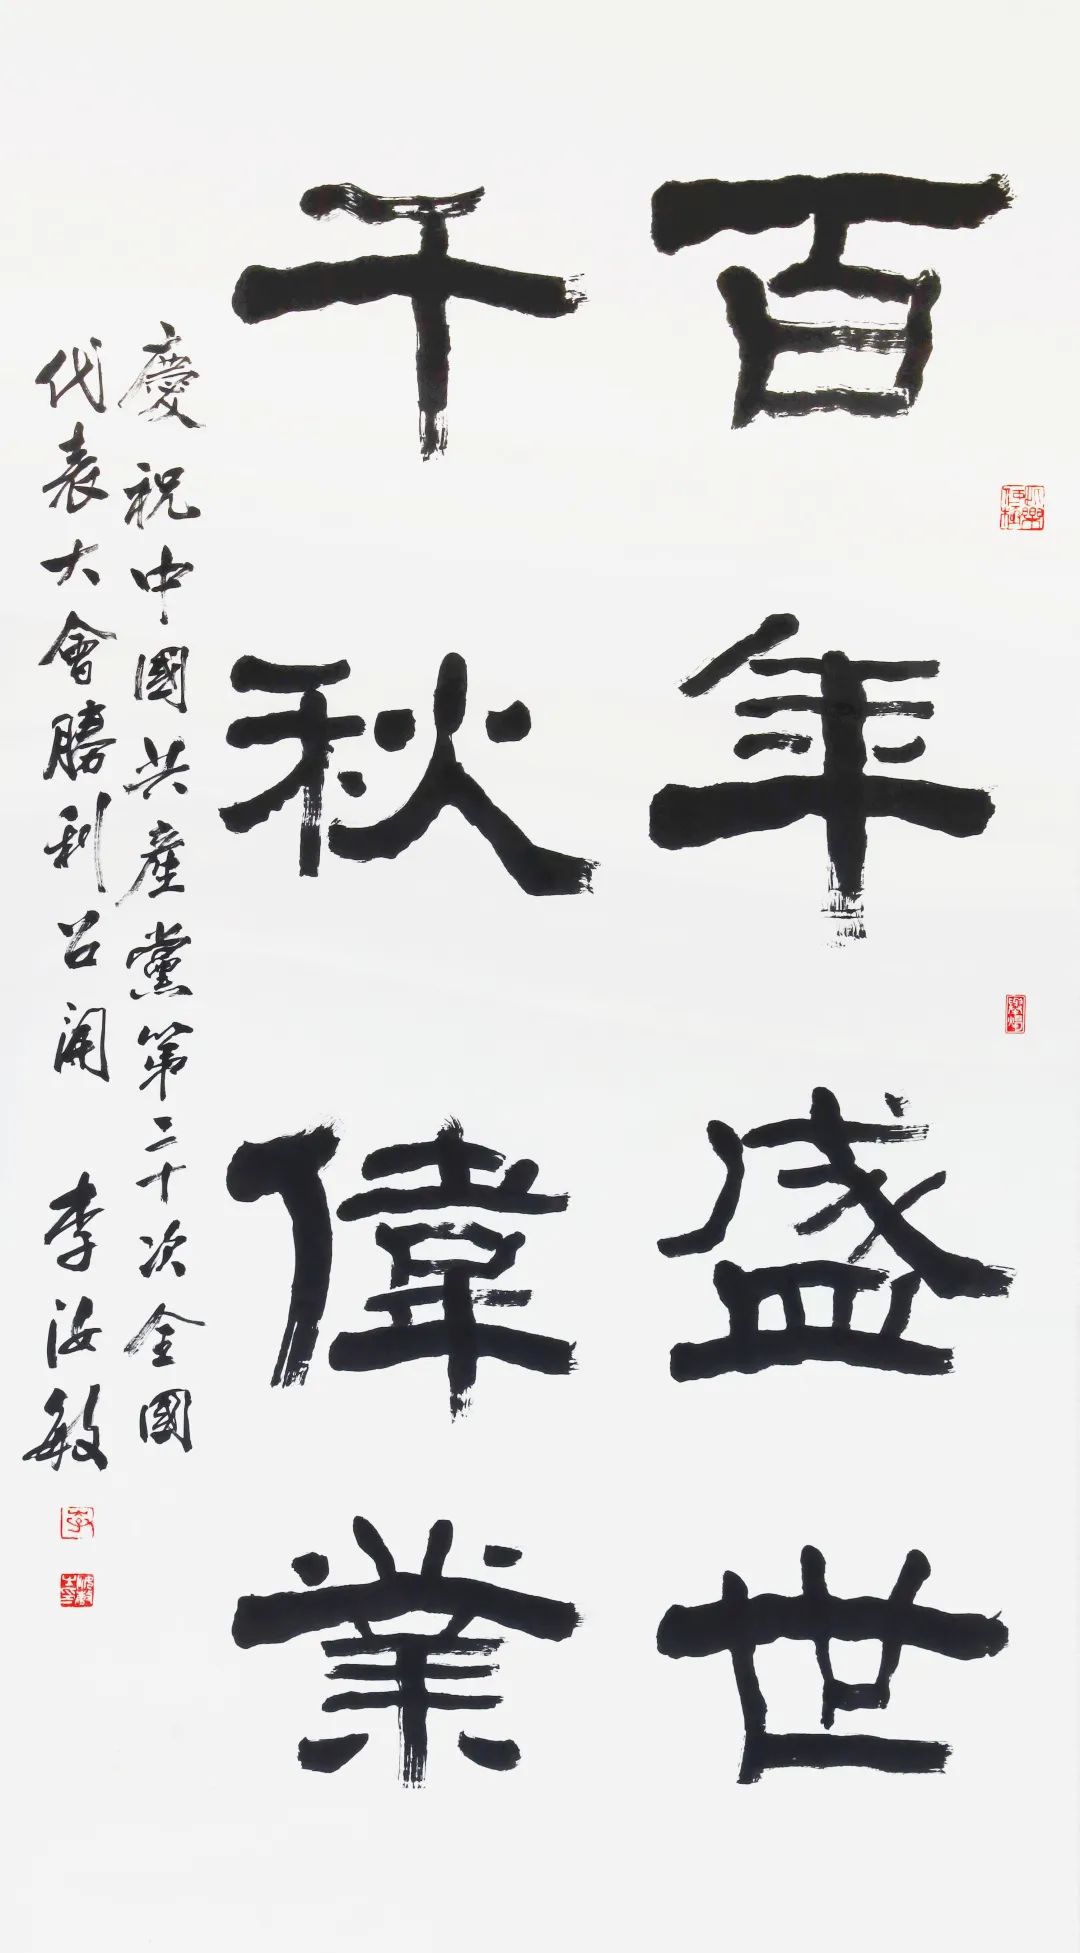 百年盛世
千秋偉業
慶祝中國共産黨第二十次全國
代表大會勝利召開 李汝敏